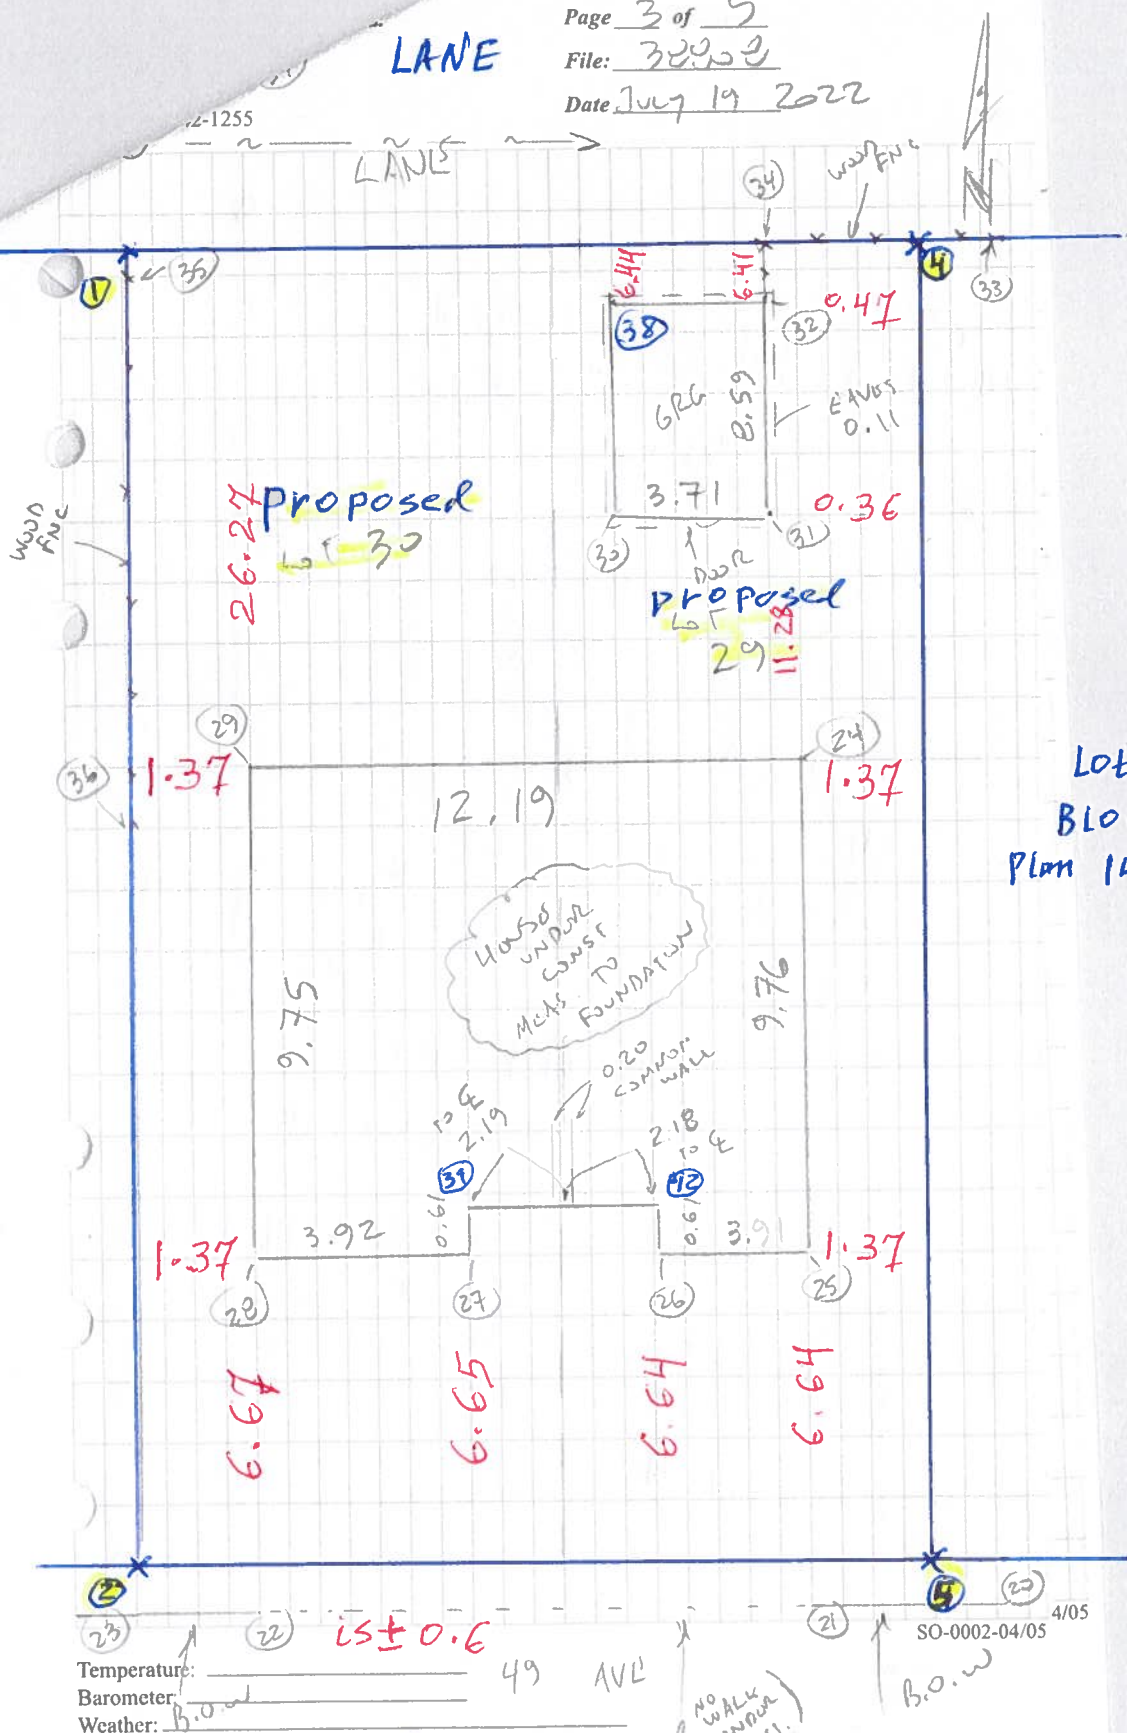 Page 3 of 5
LANE
File:
Date July 19 2022
2-1255
LANE
34
WOOD FNC
35
1
6.44
6.41
4
33
38
32
0.47
GRG
8.59
EAVES
0.11
3.71
0.36
30
31
DOOR
WOOD
FNC
26.27
Proposed
LOT 30
proposed
LOT
29
11.28
29
24
36
1.37
1.37
12.19
Lot
BLO
Plan
HOUSE
UNDER
CONST
MEAS TO
FOUNDATION
9.75
9.76
0.20
COMMON
WALL
TO ℄
2.19
2.18
TO ℄
39
0.61
0.61
3.92
3.91
1.37
1.37
28
27
26
25
6.67
6.65
6.64
6.64
2
5
20
23
22
is ± 0.6
21
4/05
SO-0002-04/05
Temperature:
49 AVE
Barometer:
B.O.W
B.O.W
Weather:
NO
WALK
UNDER